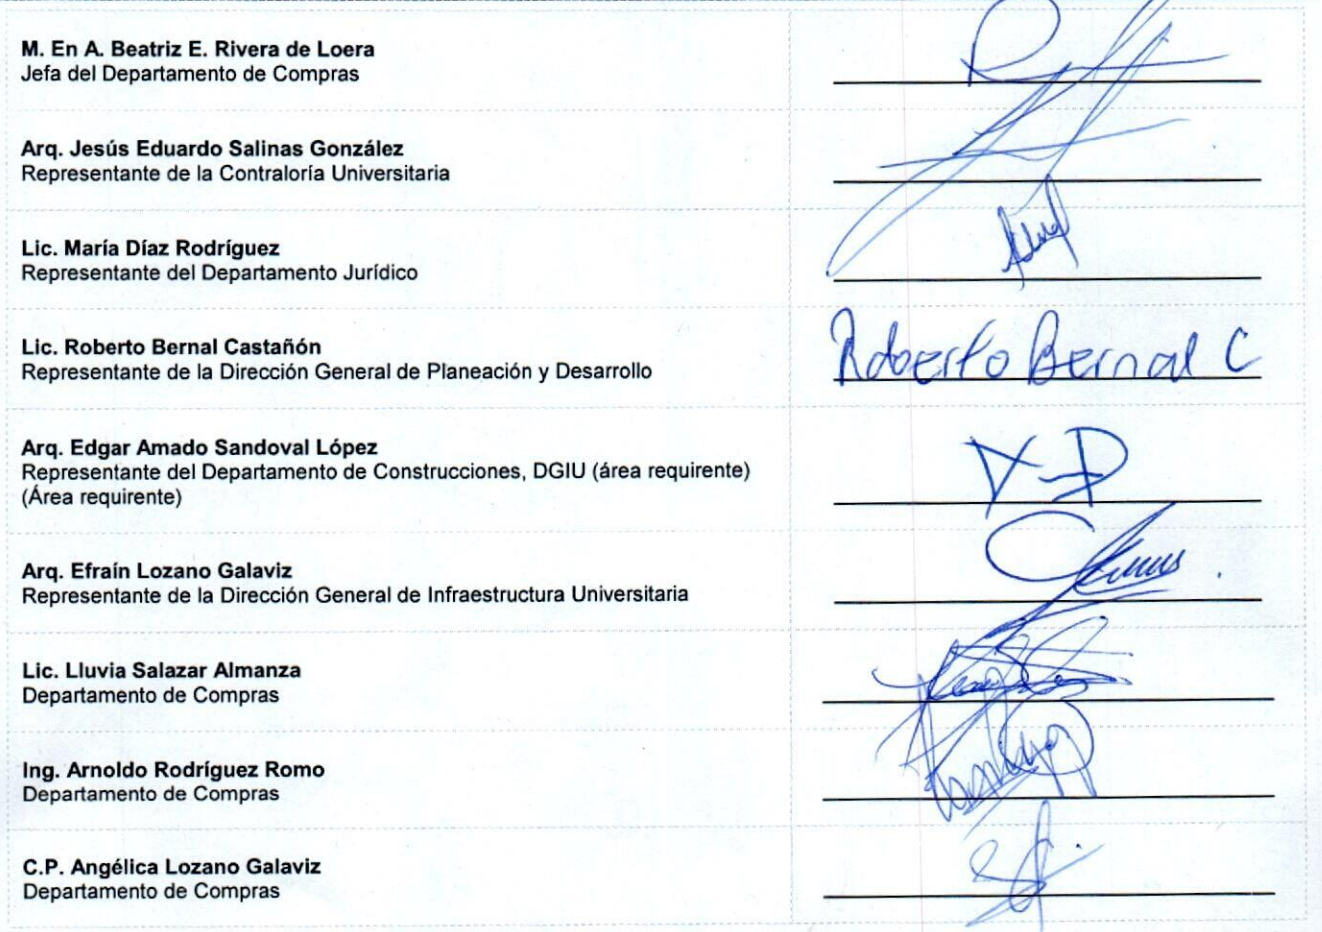 M. En A. Beatriz E. Rivera de Loera
Jefa del Departamento de Compras
Arq. Jesús Eduardo Salinas González
Representante de la Contraloría Universitaria
Lic. María Díaz Rodríguez
Representante del Departamento Jurídico
Lic. Roberto Bernal Castañón
Representante de la Dirección General de Planeación y Desarrollo
Roberto Bernal C
Arq. Edgar Amado Sandoval López
Representante del Departamento de Construcciones, DGIU (área requirente)
(Área requirente)
Arq. Efraín Lozano Galaviz
Representante de la Dirección General de Infraestructura Universitaria
Lic. Lluvia Salazar Almanza
Departamento de Compras
Ing. Arnoldo Rodríguez Romo
Departamento de Compras
C.P. Angélica Lozano Galaviz
Departamento de Compras